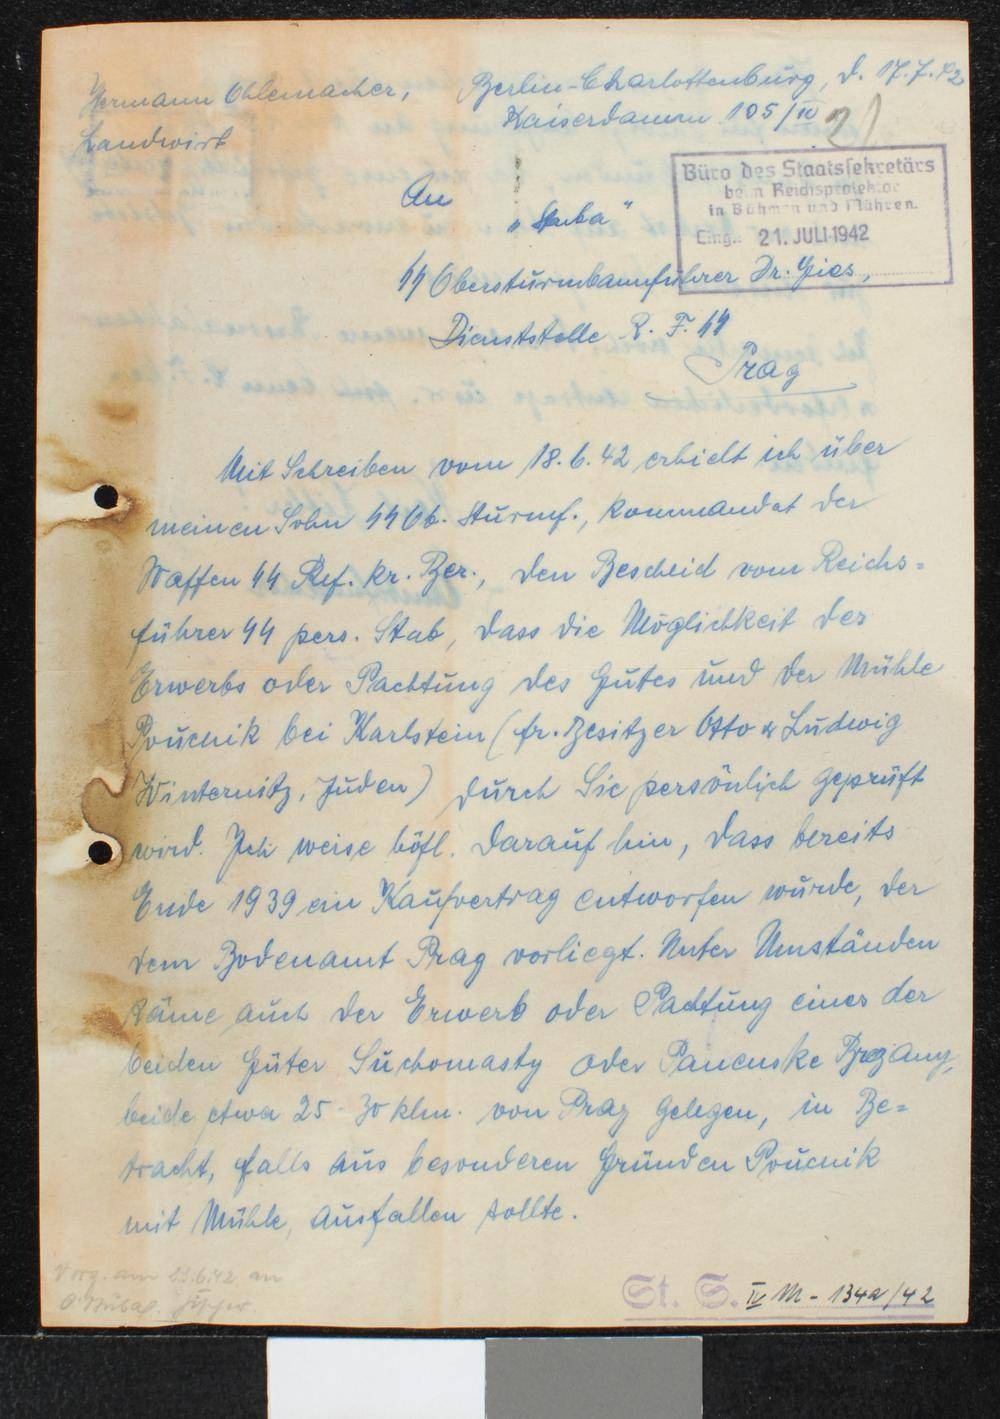 Hermann Ohlemacher,
Landwirt
Berlin-Charlottenburg, d. 17.7.42
Kaiserdamm 105/IV
21
Büro des Staatssekretärs
beim Reichsprotektor
in Böhmen und Mähren.
Eing.: 21. JULI 1942
An
SS Obersturmbannführer Dr. Gies,
Dienststelle R. F. SS
Prag
Mit Schreiben vom 18.6.42 erhielt ich über
meinen Sohn SS Ob. Sturmf., Kommandat der
Waffen SS Ref. Kr. Ber., den Bescheid vom Reichs=
führer SS pers. Stab, dass die Möglichkeit des
Erwerbs oder Pachtung des Gutes und der Mühle
Poucnik bei Karlstein (fr. Besitzer Otto & Ludwig
Winternitz, Juden) durch Sie persönlich geprüft
wird. Ich weise höfl. darauf hin, dass bereits
Ende 1939 ein Kaufvertrag entworfen wurde, der
dem Bodenamt Prag vorliegt. Unter Umständen
käme auch der Erwerb oder Pachtung eines der
beiden Güter Suchomasty oder Panenske Brezany,
beide etwa 25-30 klm. von Prag gelegen, in Be=
tracht, falls aus besonderen Gründen Poucnik
mit Mühle, ausfallen sollte.
Vorg. am 23.6.42 an
St. S. IV M - 134a/42